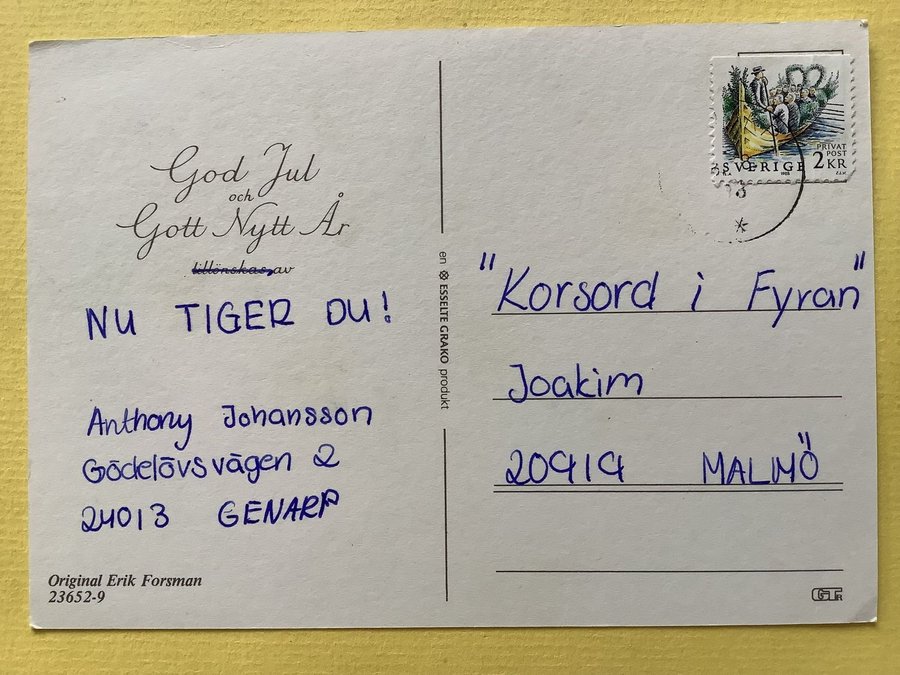 God Jul
och
Gott Nytt År
tillönskas av
NU TIGER DU!
Anthony Johansson
Gödelövsvägen 2
24013 GENARP
Original Erik Forsman
23652-9
en ESSELTE GRAKO produkt
PRIVAT
POST
SVERIGE 2 KR
"Korsord i Fyran"
Joakim
20919 MALMÖ